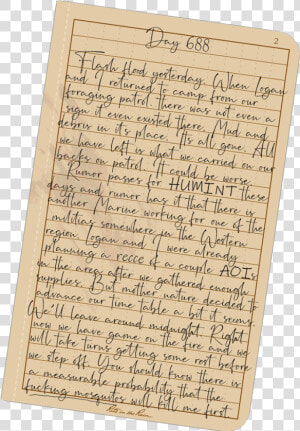 Day 688
2
Flash flood yesterday. When Logan
and I returned to camp from our
foraging patrol there was not even a
sign it even existed there. Mud and
debris in it's place. Its all gone. All
we have left is what we carried on our
backs on patrol. It could be worse.
Rumor passes for HUMINT these
days and rumor has it that there is
another Marine working for one of the
militias somewhere in the Western
region. Logan and I were already
planning a recce of a couple AOIs
in the area after we gathered enough
supplies. But mother nature decided to
advance our time table a bit it seems.
We'll leave around midnight. Right
now we have game on the fire and we
will take turns getting some rest before
we step off. You should know there is
a measurable probability that the
fucking mosquitos will kill me first.